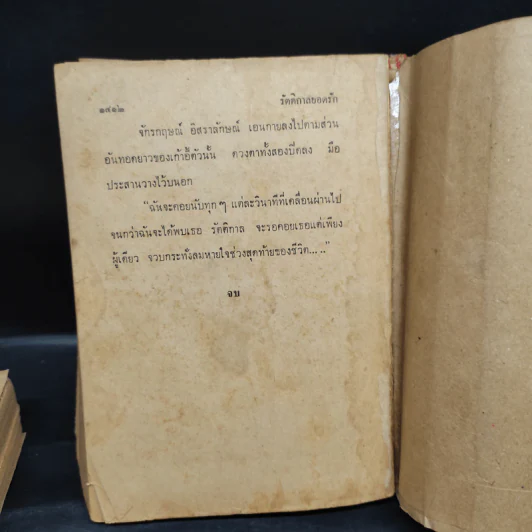 ๑๙๑๒ รัตติกาลยอดรัก
จักรกฤษณ์ อิสราลักษณ์ เอนกายลงไปตามส่วน
อันทอดยาวของเก้าอี้ตัวนั้น ดวงตาทั้งสองปิดลง มือ
ประสานวางไว้บนอก
“ฉันจะคอยนับทุก ๆ แต่ละวินาทีที่เคลื่อนผ่านไป
จนกว่าฉันจะได้พบเธอ รัตติกาล จะรอคอยเธอแต่เพียง
ผู้เดียว จวบกระทั่งลมหายใจช่วงสุดท้ายของชีวิต.....”
จบ